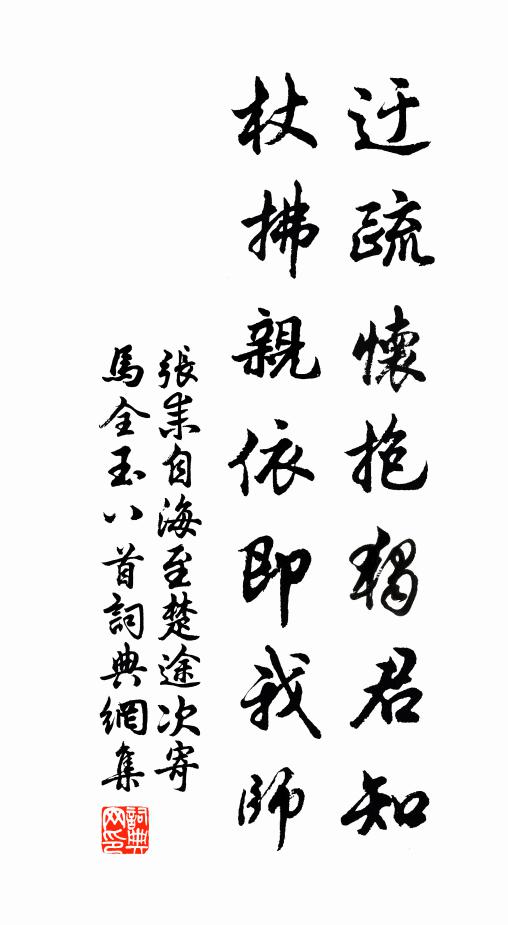 迂疏懷抱獨君知
杖拂親依即我師
張耒自海至楚途次寄
馬全玉八首詞典網集
詞典
网印